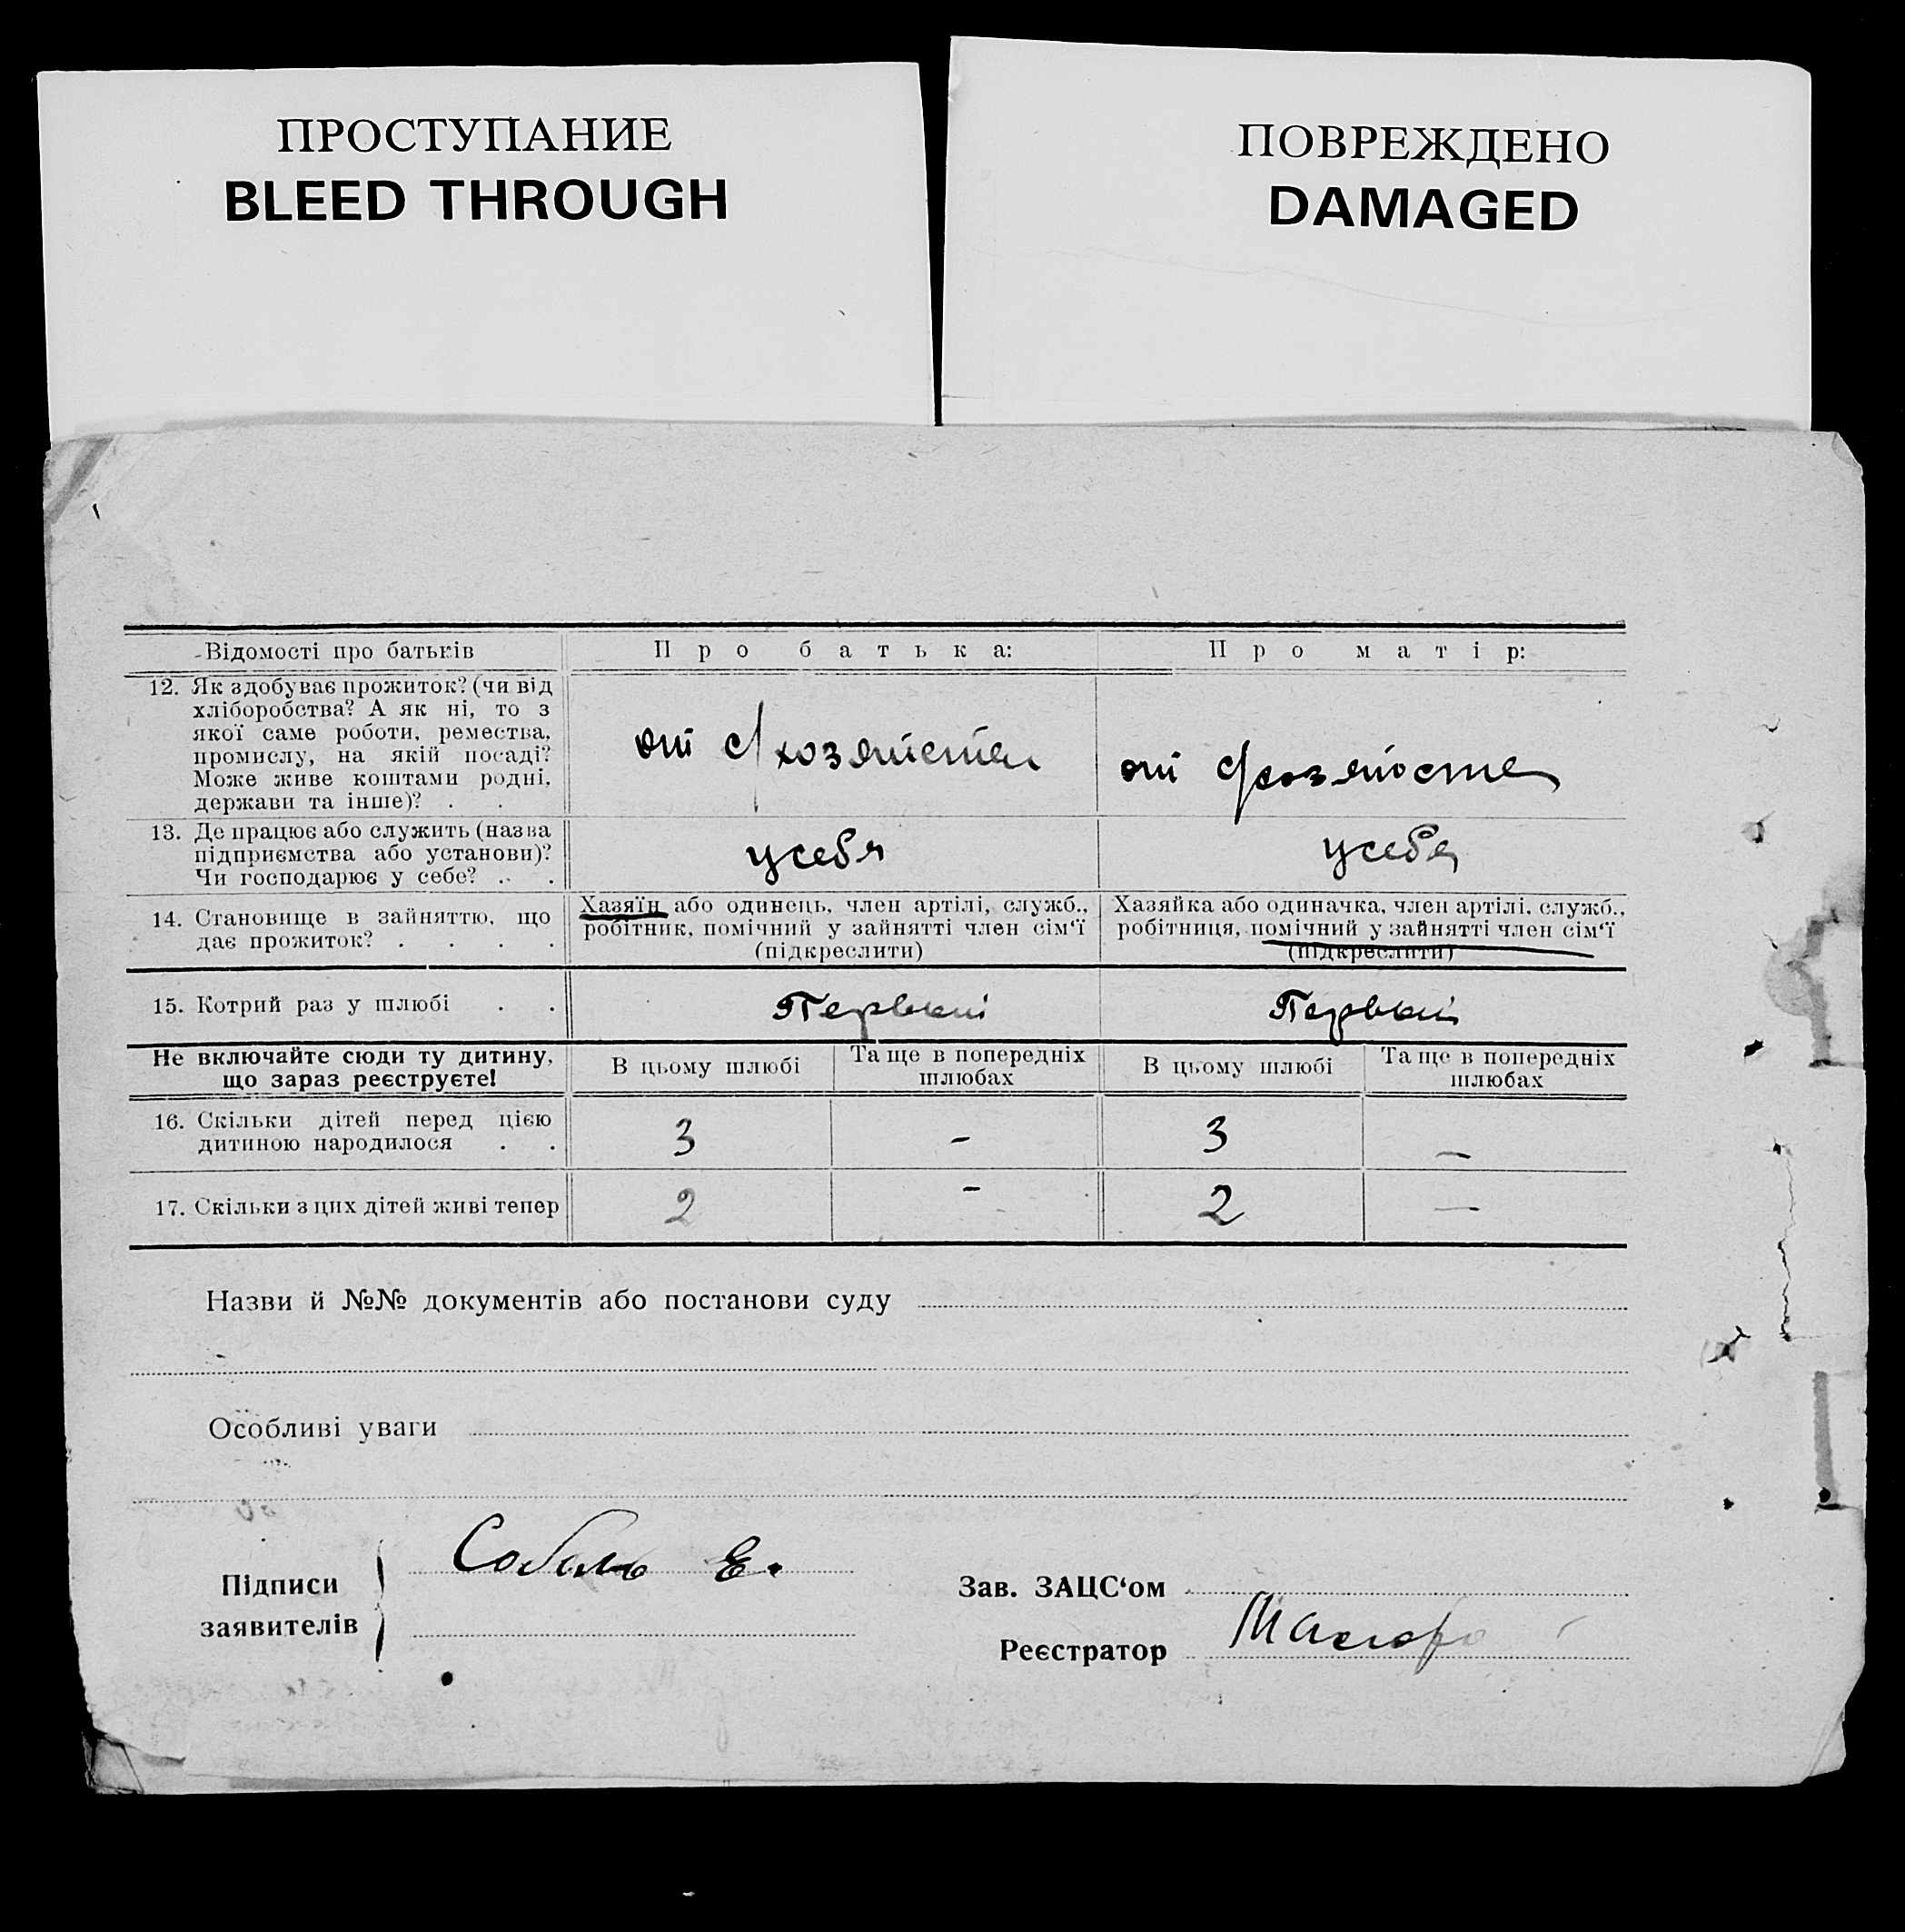 ПРОСТУПАНИЕ
BLEED THROUGH
ПОВРЕЖДЕНО
DAMAGED
Відомості про батьків
Про батька:
Про матір:
12. Як здобуває прожиток? (чи від
хліборобства? А як ні, то з
якої саме роботи, ремества,
промислу, на якій посаді?
Може живе коштами родні,
держави та інше)? . .
от с/хозяйства
от с/хозяйства
13. Де працює або служить (назва
підприємства або установи)?
Чи господарює у себе? . .
у себя
у себя
14. Становище в зайняттю, що
дає прожиток? . . . .
Хазяїн або одинець, член артілі, служб.,
робітник, помічний у зайнятті член сім‘ї
(підкреслити)
Хазяйка або одиначка, член артілі, служб.,
робітниця, помічний у зайнятті член сім‘ї
(підкреслити)
15. Котрий раз у шлюбі . .
Первый
Первый
Не включайте сюди ту дитину,
що зараз реєструєте!
В цьому шлюбі
Та ще в попередніх
шлюбах
В цьому шлюбі
Та ще в попередніх
шлюбах
16. Скільки дітей перед цією
дитиною народилося . .
3
-
3
-
17. Скільки з цих дітей живі тепер
2
-
2
-
Назви й №№ документів або постанови суду
Особливі уваги
Підписи
заявителів
Соболь Е.
Зав. ЗАЦС‘ом
Реєстратор